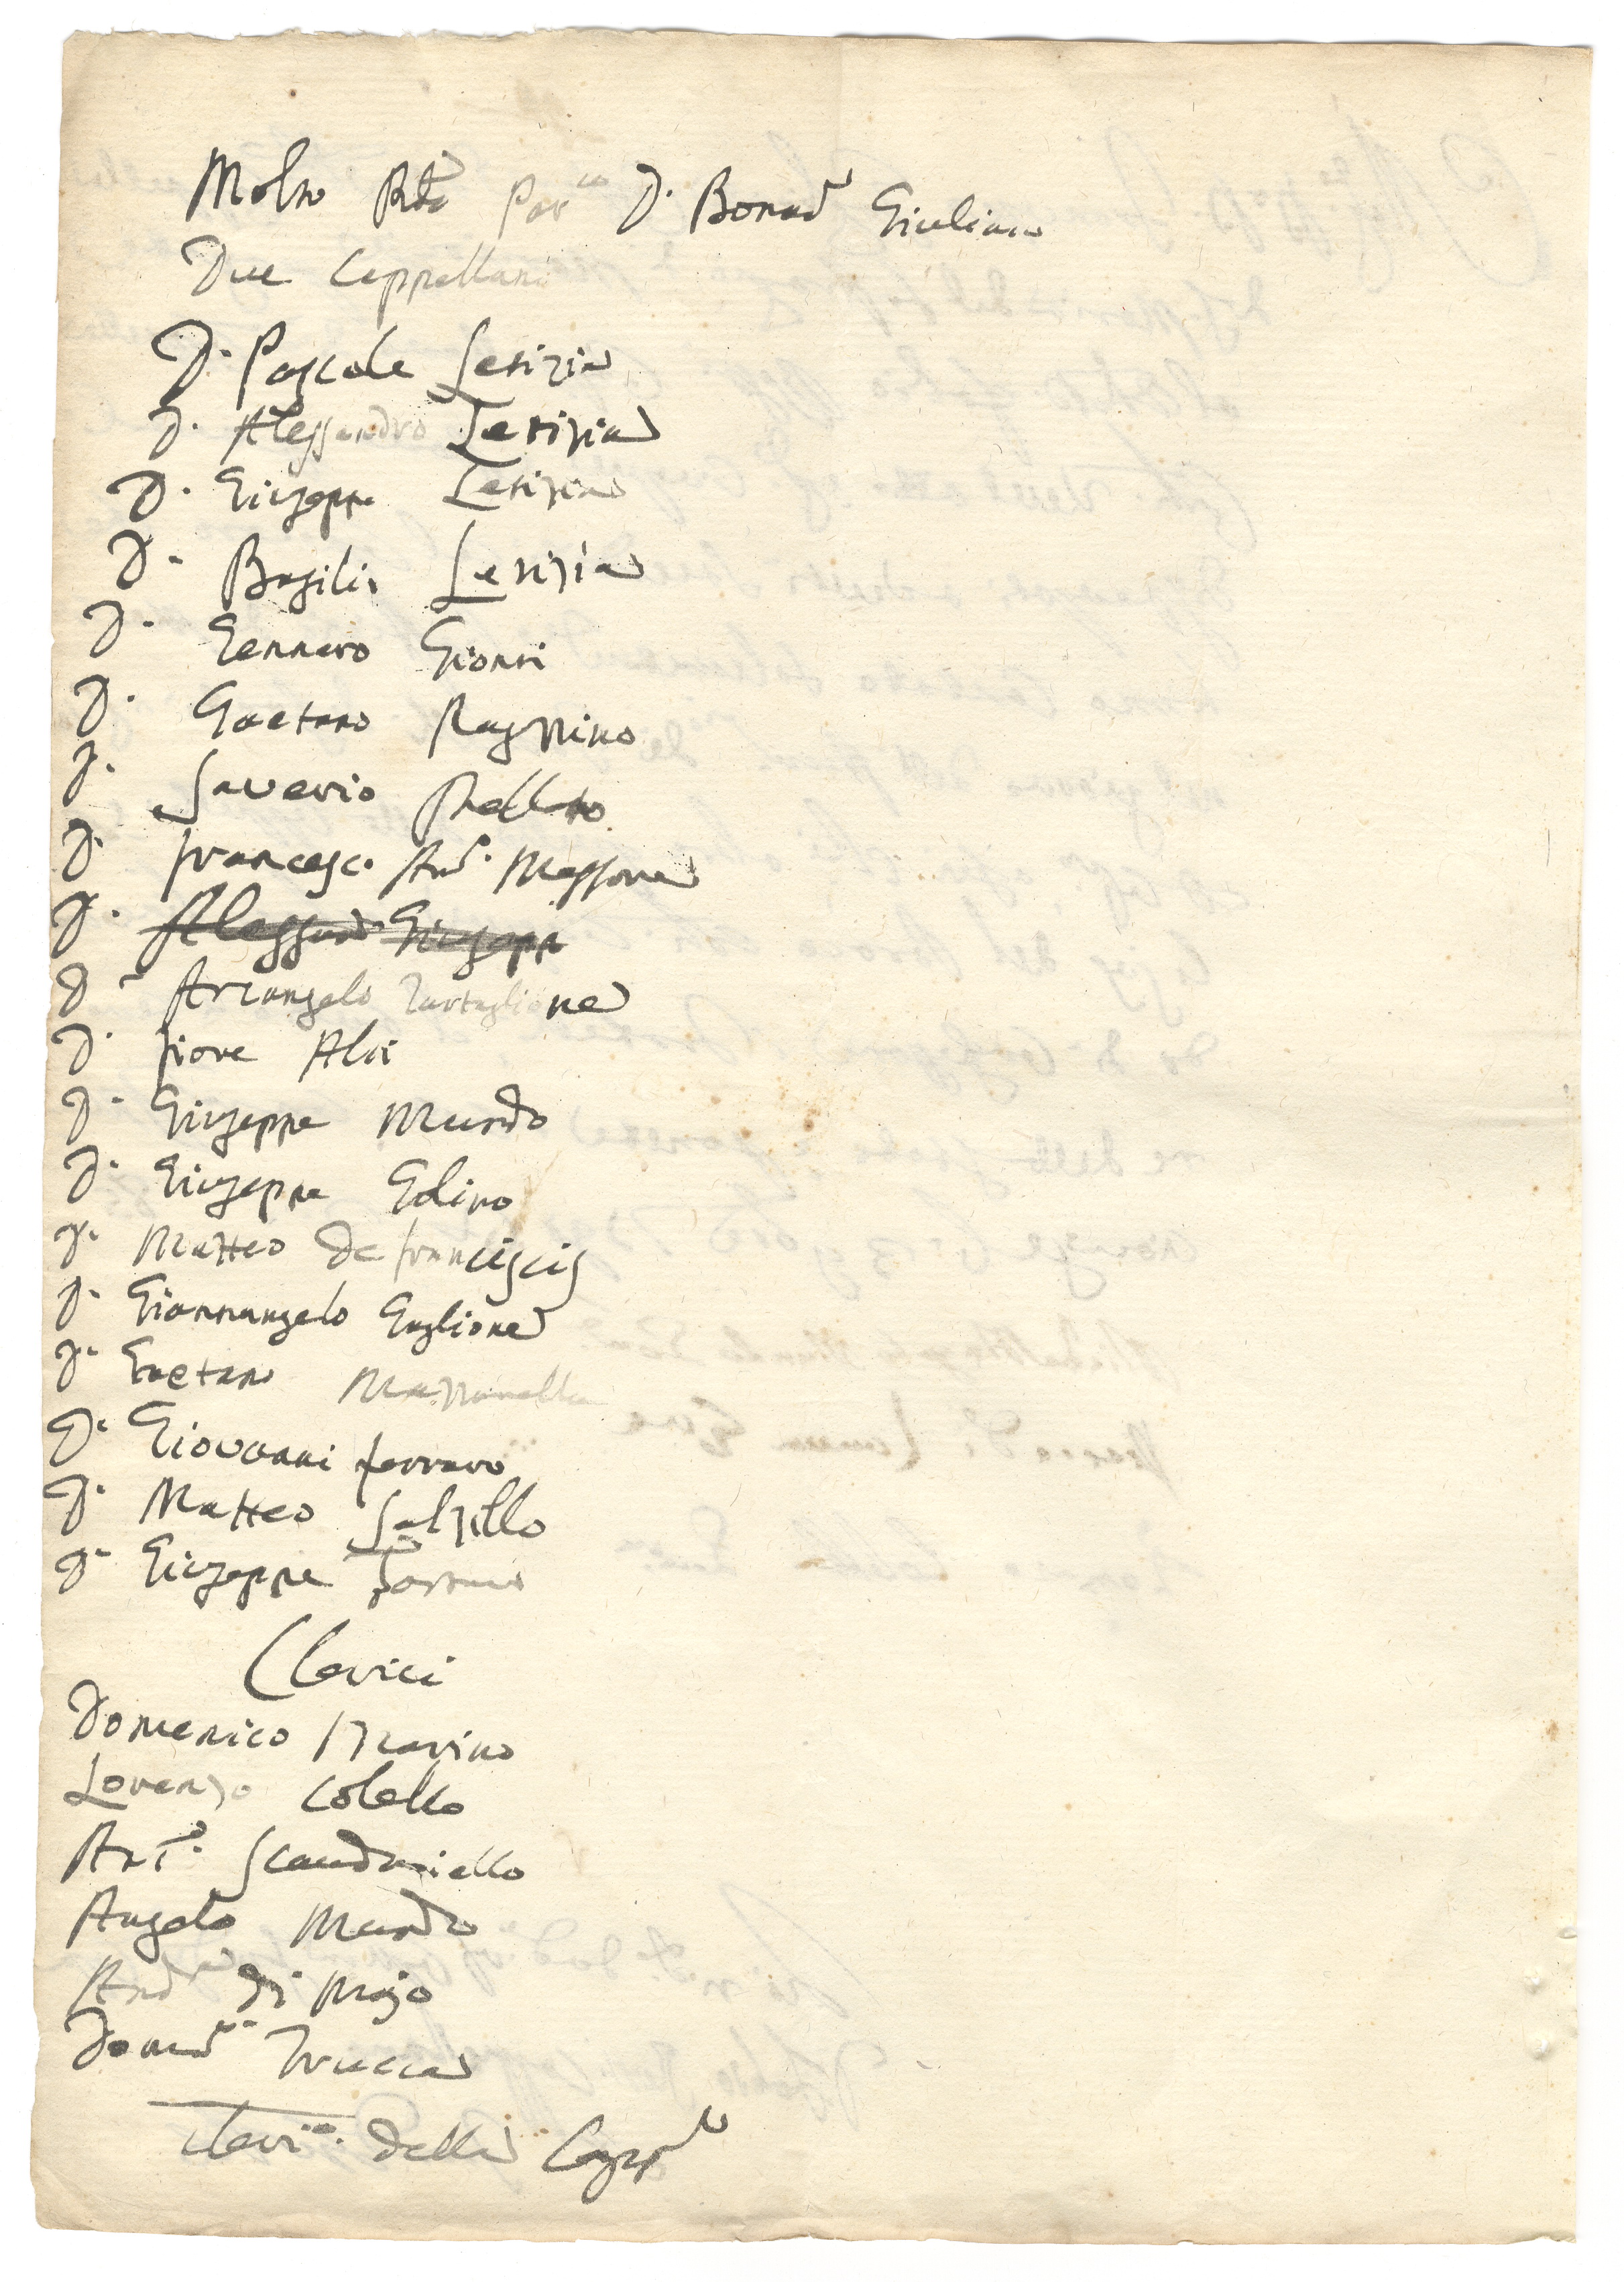 Molto Rdo Par.co D. Bonad.a Giuliano
Due Cappellani
D. Pascale Letizia
D. Alessandro Letizia
D. Giuseppe Letizia
D. Basilio Letizia
D. Gennaro Gionti
D. Gaetano Razzino
D. Saverio Rello
D. Francesco Ant.o Massone
D. Alessand. Giuseppe
D. Arcangelo Tartaglione
D. Fiore Aloi
D. Giuseppe Mundo
D. Giuseppe Golino
D. Matteo de Franciscis
D. Giannangelo Guglione
D. Gaetano Mazzarella
D. Giovanni Ferraro
D. Matteo Salzillo
D. Giuseppe
Clerici
Domenico
Lorenzo Colella
Ant.o Scaudoniello
Angelo Mundo
And.a di Majo
Dom.co Trucca
Cleri.ci della Capp.la